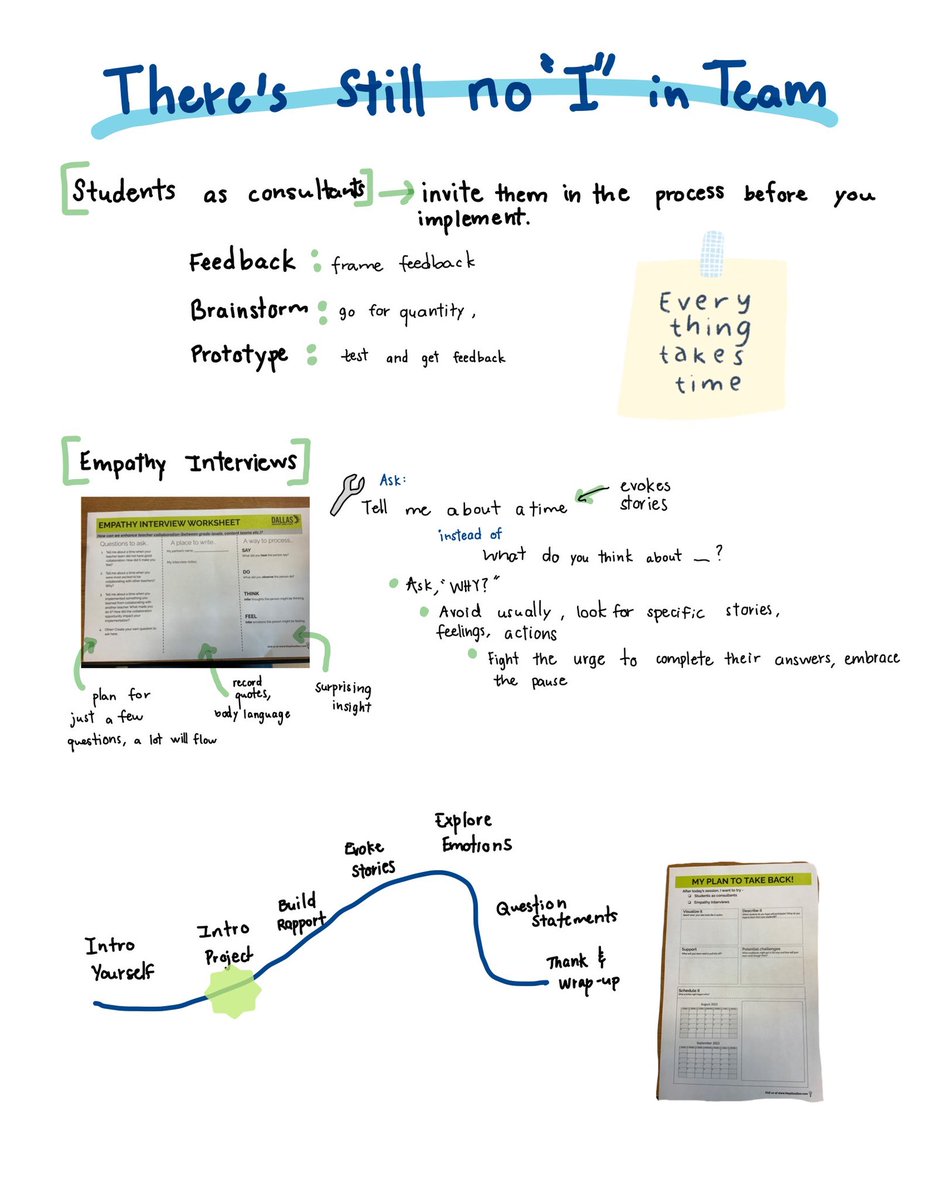 There's Still no "I" in Team
Students as consultants → invite them in the process before you
implement.
Feedback : frame feedback
Brainstorm : go for quantity,
Prototype : test and get feedback
Every
thing
takes
time
Empathy Interviews
Ask:
Tell me about a time
evokes
stories
instead of
What do you think about __?
Ask, "WHY?"
Avoid usually, look for specific stories,
feelings, actions
Fight the urge to complete their answers, embrace
the pause
DALLAS
EMPATHY INTERVIEW WORKSHEET
How can we enhance teacher collaboration (between grade levels, content teams etc.)?
Questions to ask...
A place to write...
A way to process...
My person's name
My interview notes:
SAY
What did you hear the person say?
DO
What did you observe the person do?
THINK
Infer thoughts the person might be thinking
FEEL
Infer emotions the person might be feeling
plan for
just a few
questions, a lot will flow
record
quotes,
body language
surprising
insight
Intro
Yourself
Intro
Project
Build
Rapport
Evoke
Stories
Explore
Emotions
Question
Statements
Thank &
Wrap-up
MY PLAN TO TAKE BACK!
After today's session, I want to try -
Students as consultants
Empathy Interviews
Visualize it
Describe it
Support
Potential challenges
Schedule it
August 2022
September 2022